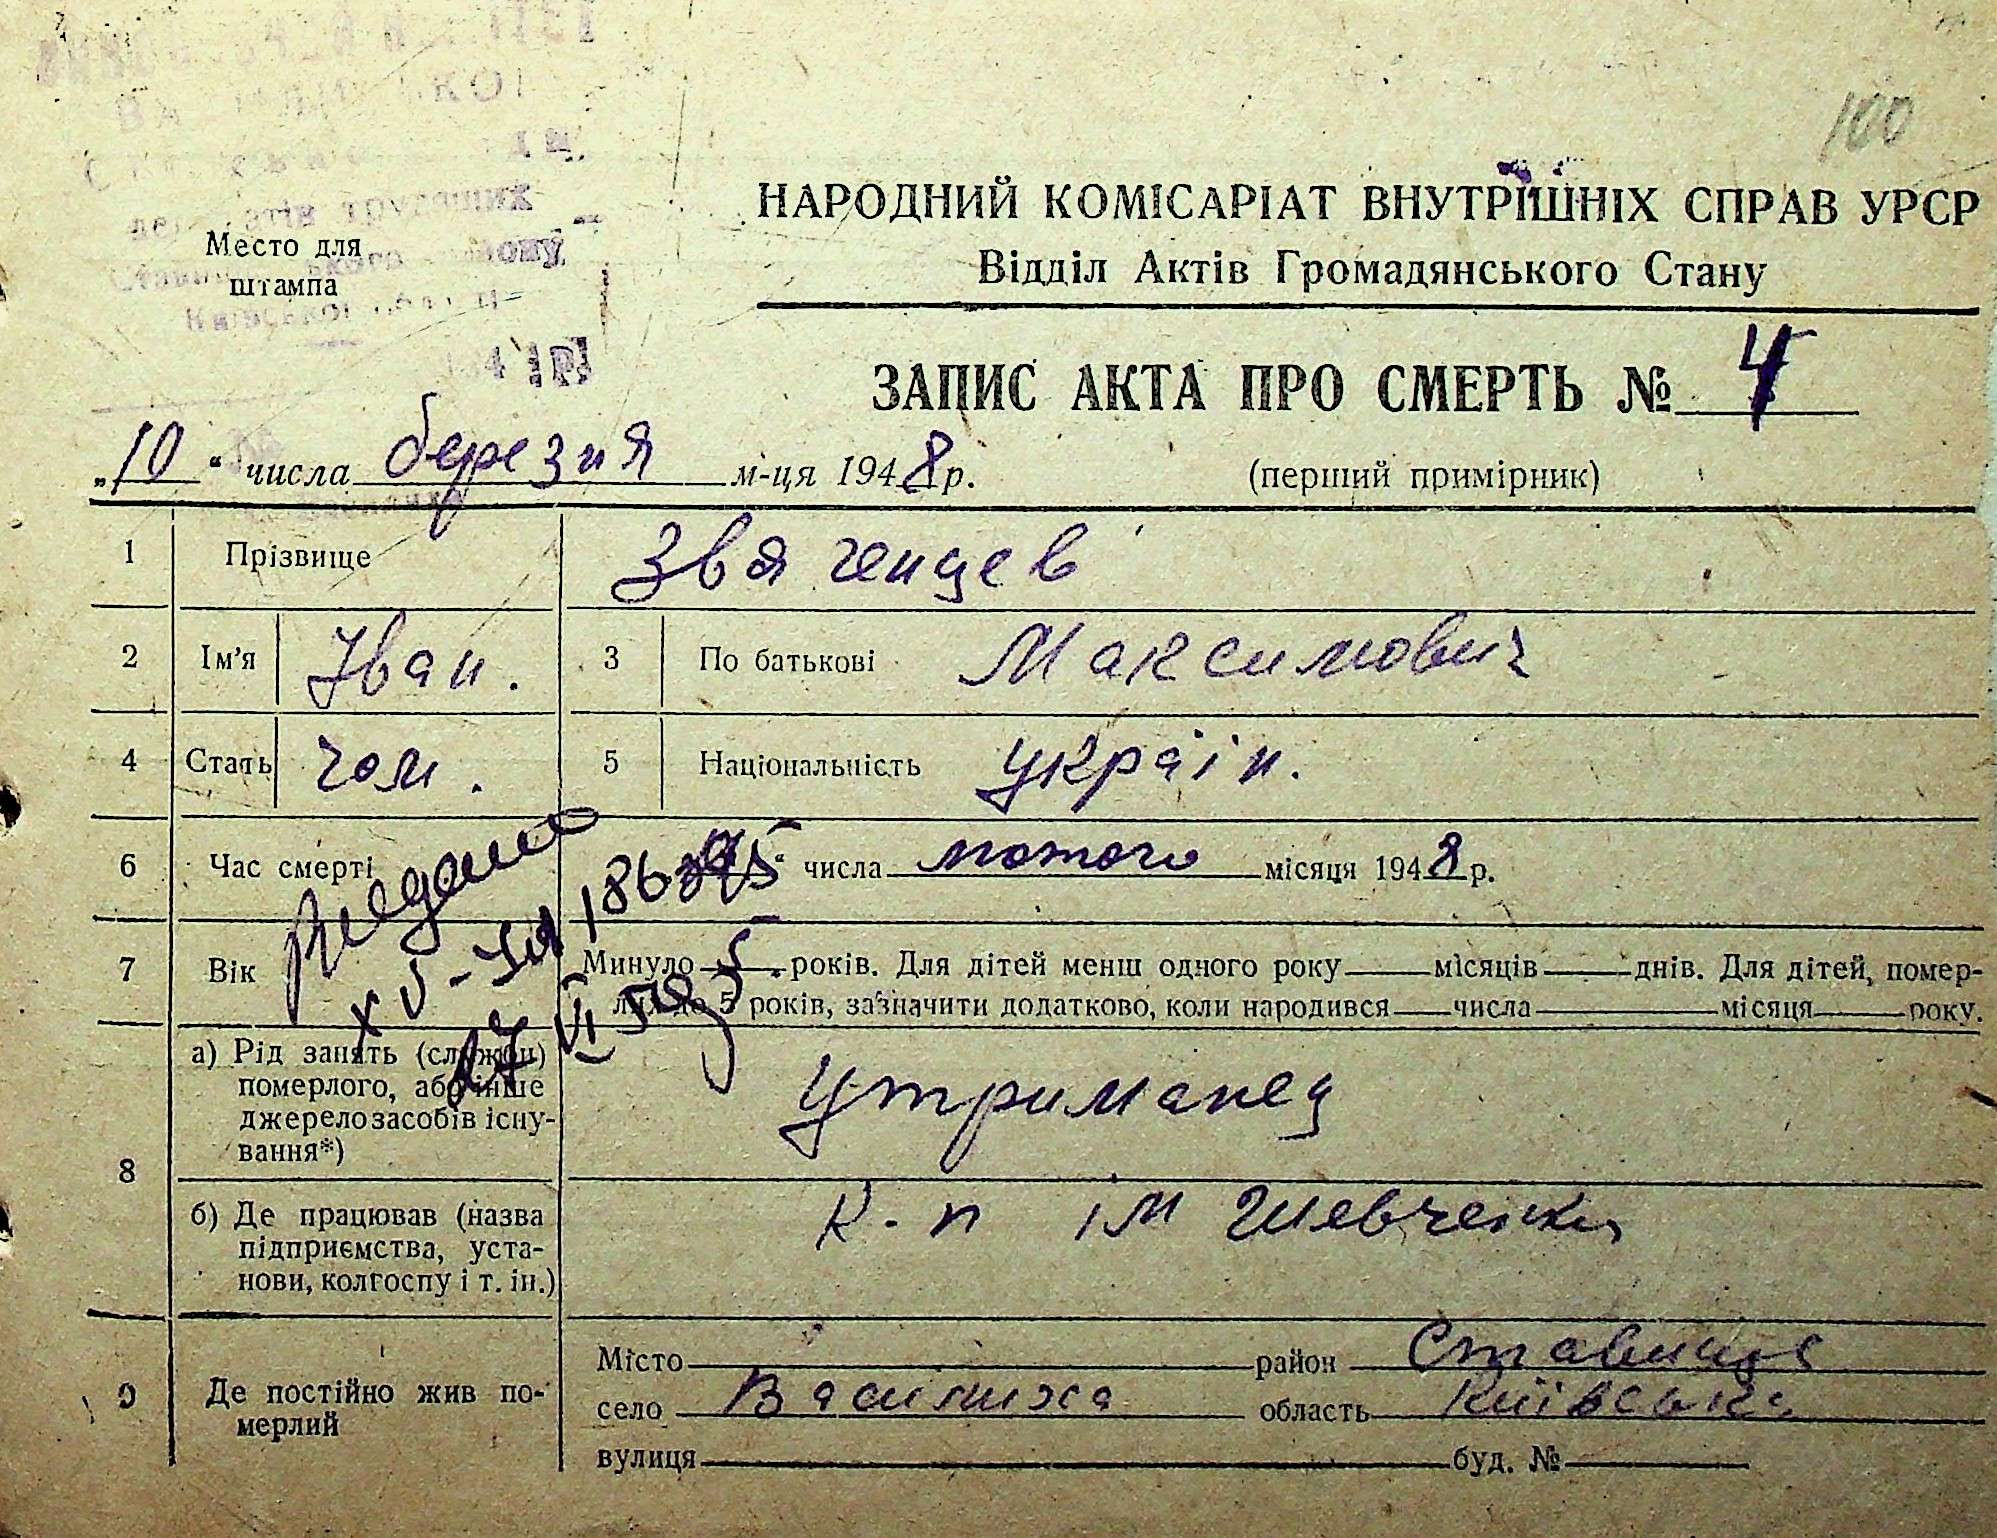 100
НАРОДНИЙ КОМІСАРІАТ ВНУТРІШНІХ СПРАВ УРСР
Відділ Актів Громадянського Стану
Место для
штампа
ЗАПИС АКТА ПРО СМЕРТЬ № 4
„10“ числа березня м-ця 1948 р.
(перший примірник)
1 Прізвище Звягенцев
2 Ім'я Іван. 3 По батькові Максимович
4 Стать чол. 5 Національність україн.
6 Час смерті числа лютого місяця 1948 р.
7 Вік Минуло років. Для дітей менш одного року місяців днів. Для дітей, помер-
лих до 5 років, зазначити додатково, коли народився числа місяця року.
Видано
8 а) Рід занять (служби)
померлого, або інше
джерело засобів існу-
вання*)
Утриманец
б) Де працював (назва
підприємства, уста-
нови, колгоспу і т. ін.)
к-п ім Шевченка
9 Де постійно жив по-
мерлий
Місто район Ставище
село Василиха область Київська
вулиця буд. №